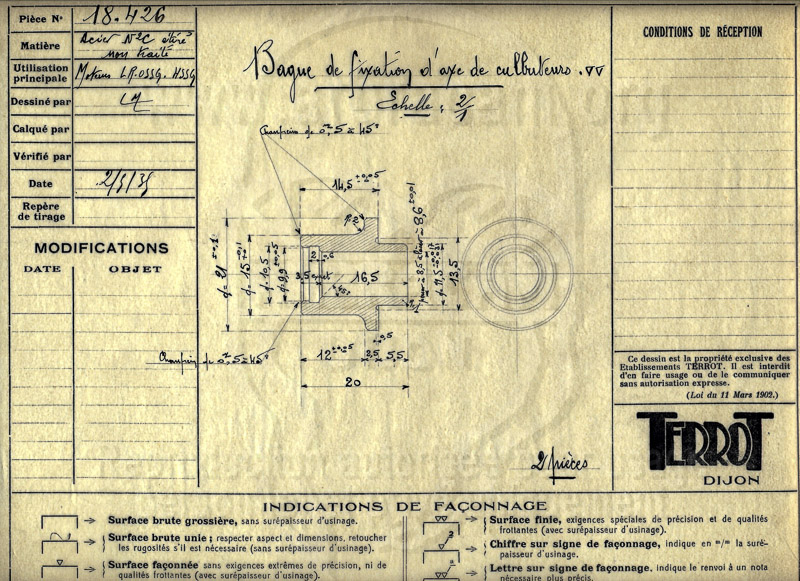 Pièce N° 18.426
Matière Acier N°2C étiré
non traité
Utilisation
principale Moteurs LR.OSSG. HSSG
Dessiné par
Calqué par
Vérifié par
Date 2/5/35
Repère
de tirage
MODIFICATIONS
DATE OBJET
Bague de fixation d'axe de culbuteurs. ▽▽
Echelle : 2/1
Chanfrein de 0,5 à 45°
14,5
R.2
φ= 21 ±0,1
φ= 15
φ= 10,5
φ= 9,9
2
3,5
16,5
45°
φ= 11,5
13,5
Chanfrein de 0,5 à 45°
12
2,5
5,5
20
2 pièces
CONDITIONS DE RÉCEPTION
Ce dessin est la propriété exclusive des
Etablissements TERROT. Il est interdit
d'en faire usage ou de le communiquer
sans autorisation expresse.
(Loi du 11 Mars 1902.)
TERROT
DIJON
INDICATIONS DE FAÇONNAGE
Surface brute grossière, sans surépaisseur d'usinage.
Surface brute unie; respecter aspect et dimensions, retoucher
les rugosités s'il est nécessaire (sans surépaisseur d'usinage).
Surface façonnée sans exigences extrêmes de précision, ni de
qualités frottantes (avec surépaisseur d'usinage).
Surface finie, exigences spéciales de précision et de qualités
frottantes (avec surépaisseur d'usinage).
Chiffre sur signe de façonnage, indique en m/m la suré-
paisseur d'usinage.
Lettre sur signe de façonnage, indique le renvoi à un nota
nécessaire plus précis.